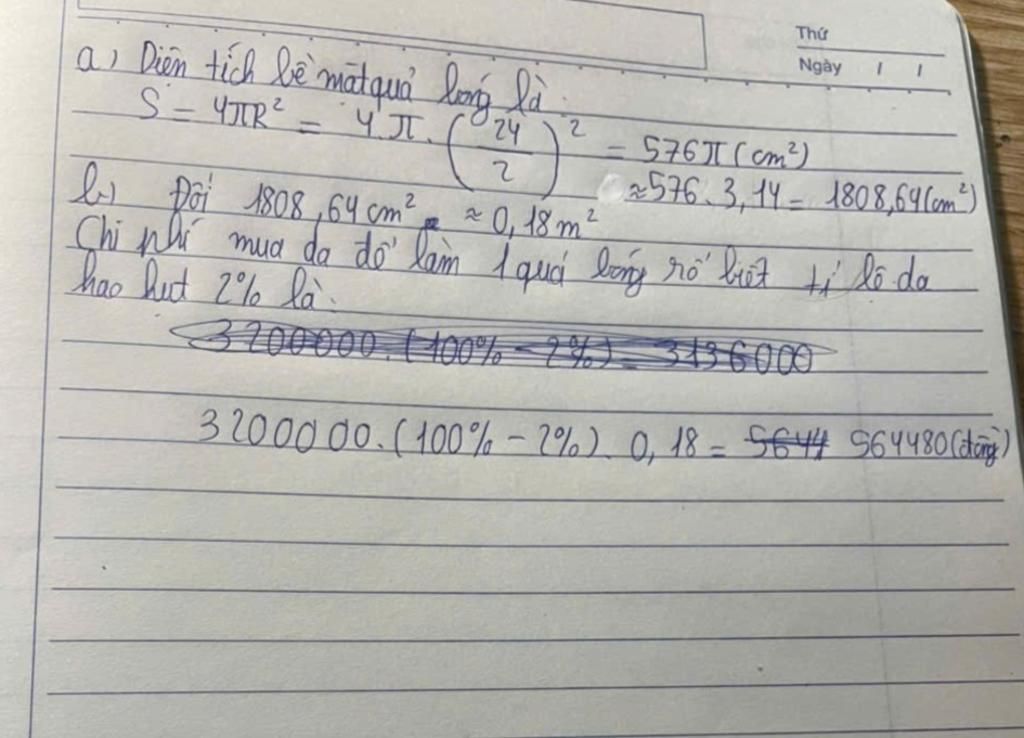 Thứ
Ngày / /
a) Diện tích bề mặt quả bóng là:
S = 4πR² = 4.π.(24/2)² = 576π (cm²)
≈ 576.3,14 = 1808,64 (cm²)
b) Đổi 1808,64 cm² ≈ 0,18m²
Chi phí mua da để làm 1 quả bóng rổ biết tỉ lệ da
hao hụt 2% là:
3200000.(100% - 2%) = 3136000
3200000.(100% - 2%). 0,18 = 5644 564480 (đồng)